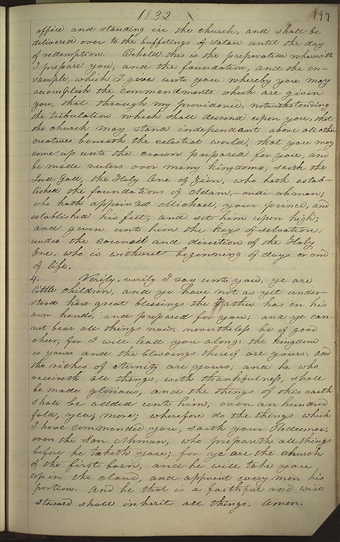 1832 197
office and standing in the church, and shall be
delivered over to the buffetings of satan until the day
of redemption. Behold this is the preparation wherewith
I prepare you, and the foundation, and the en-
sample, which I give unto you whereby you may
accomplish the commandments which are given
you, that through my providence, notwithstanding
the tribulation which shall descend upon you, that
the church may stand independent above all other
creatures beneath the celestial world, that you may
come up unto the crown prepared for you, and
be made rulers over many kingdoms, saith the
Lord God, the Holy One of Zion, who hath estab-
lished the foundations of Adam-ondi-ahman,
who hath appointed Michael, your prince, and
established his feet, and set him upon high;
and given unto him the keys of salvation
under the counsel and direction of the Holy
One, who is without beginning of days or end
of life.
4. Verily, verily I say unto you, ye are
little children, and ye have not as yet under-
stood how great blessings the Father has in his
own hands, and prepared for you; and ye can-
not bear all things now, nevertheless be of good
cheer, for I will lead you along: the kingdom
is yours and the blessings thereof are yours, and
the riches of eternity are yours; and he who
receiveth all things, with thankfulness, shall
be made glorious, and the things of this earth
shall be added unto him, even an hundred
fold, yea, more; wherefore do the things which
I have commanded you, saith your Redeemer,
even the Son Ahman, who prepareth all things
before he taketh you; for ye are the church
of the first born, and he will take you
up in the cloud, and appoint every man his
portion. And he that is a faithful and wise
steward shall inherit all things. Amen.